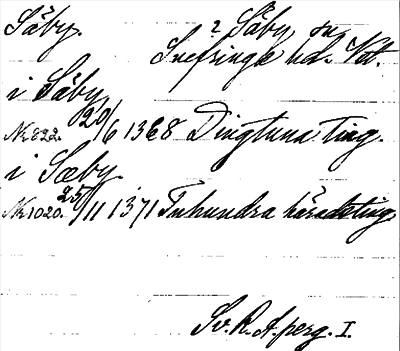 Säby.
? Säby sn
Snefringe hd. Vstm.
i Säby
Nr 822. 29/6 1368 Dingtuna ting.
i Sæby
Nr 1020. 25/11 1371 Tuhundra häradsting
Sv. R. A. perg. I.